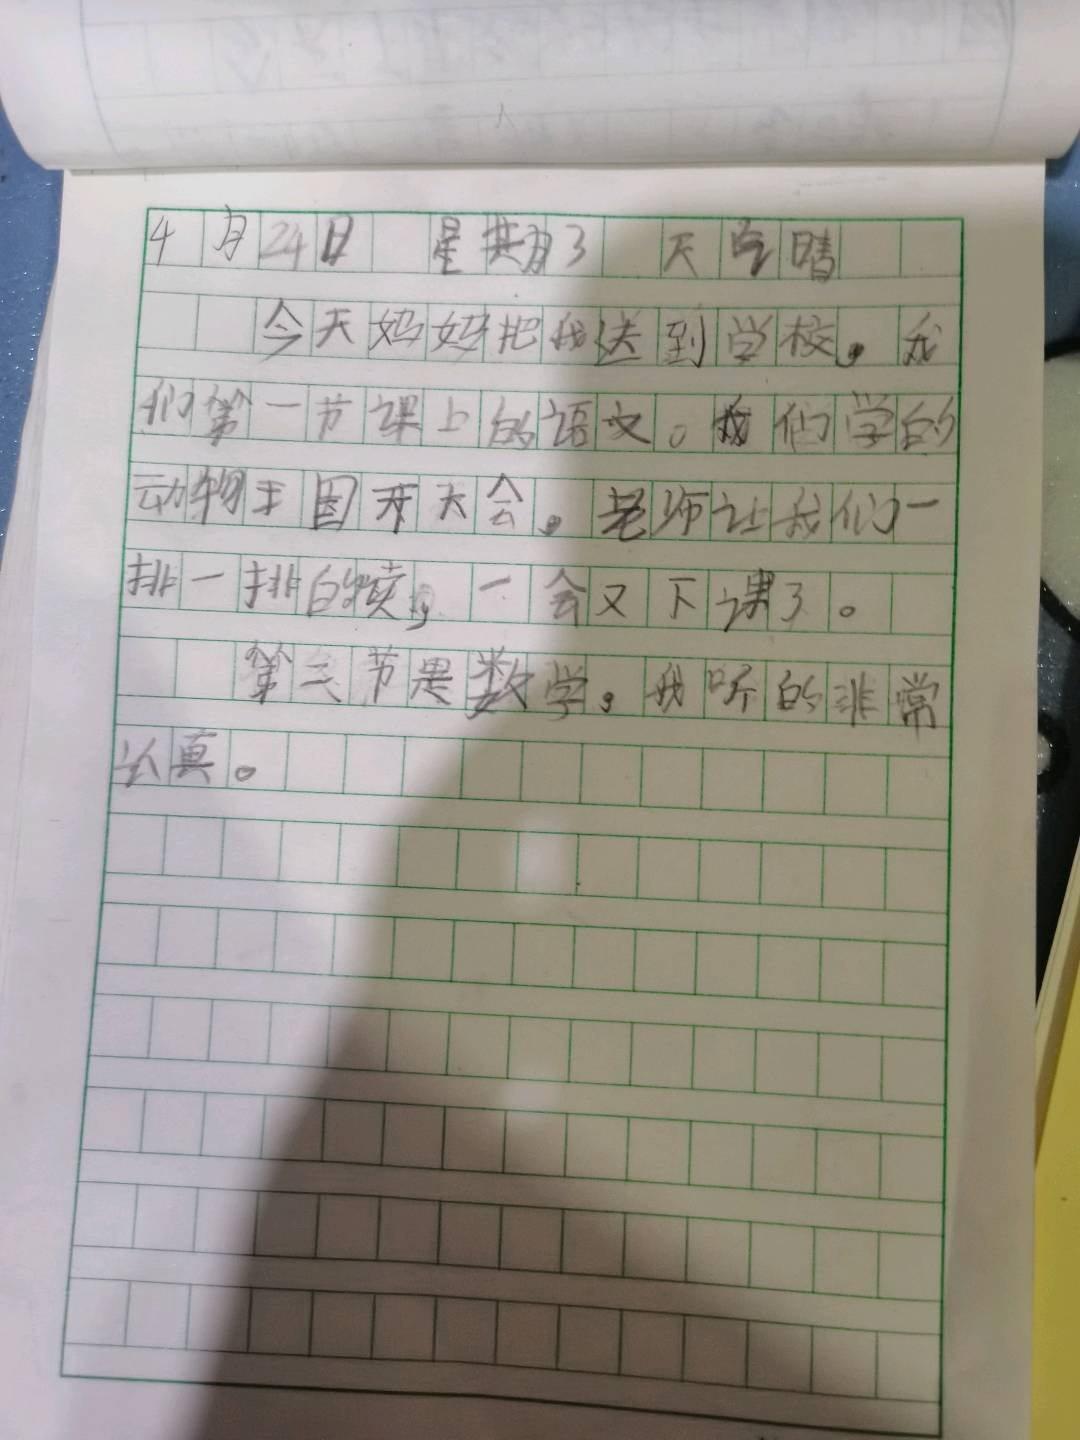 4月24日 星期3 天气晴
今天妈妈把我送到学校。我
们第一节课上的语文。我们学的
动物王国开大会。老师让我们一
排一排的读，一会又下课了。
第二节是数学，我听的非常
认真。